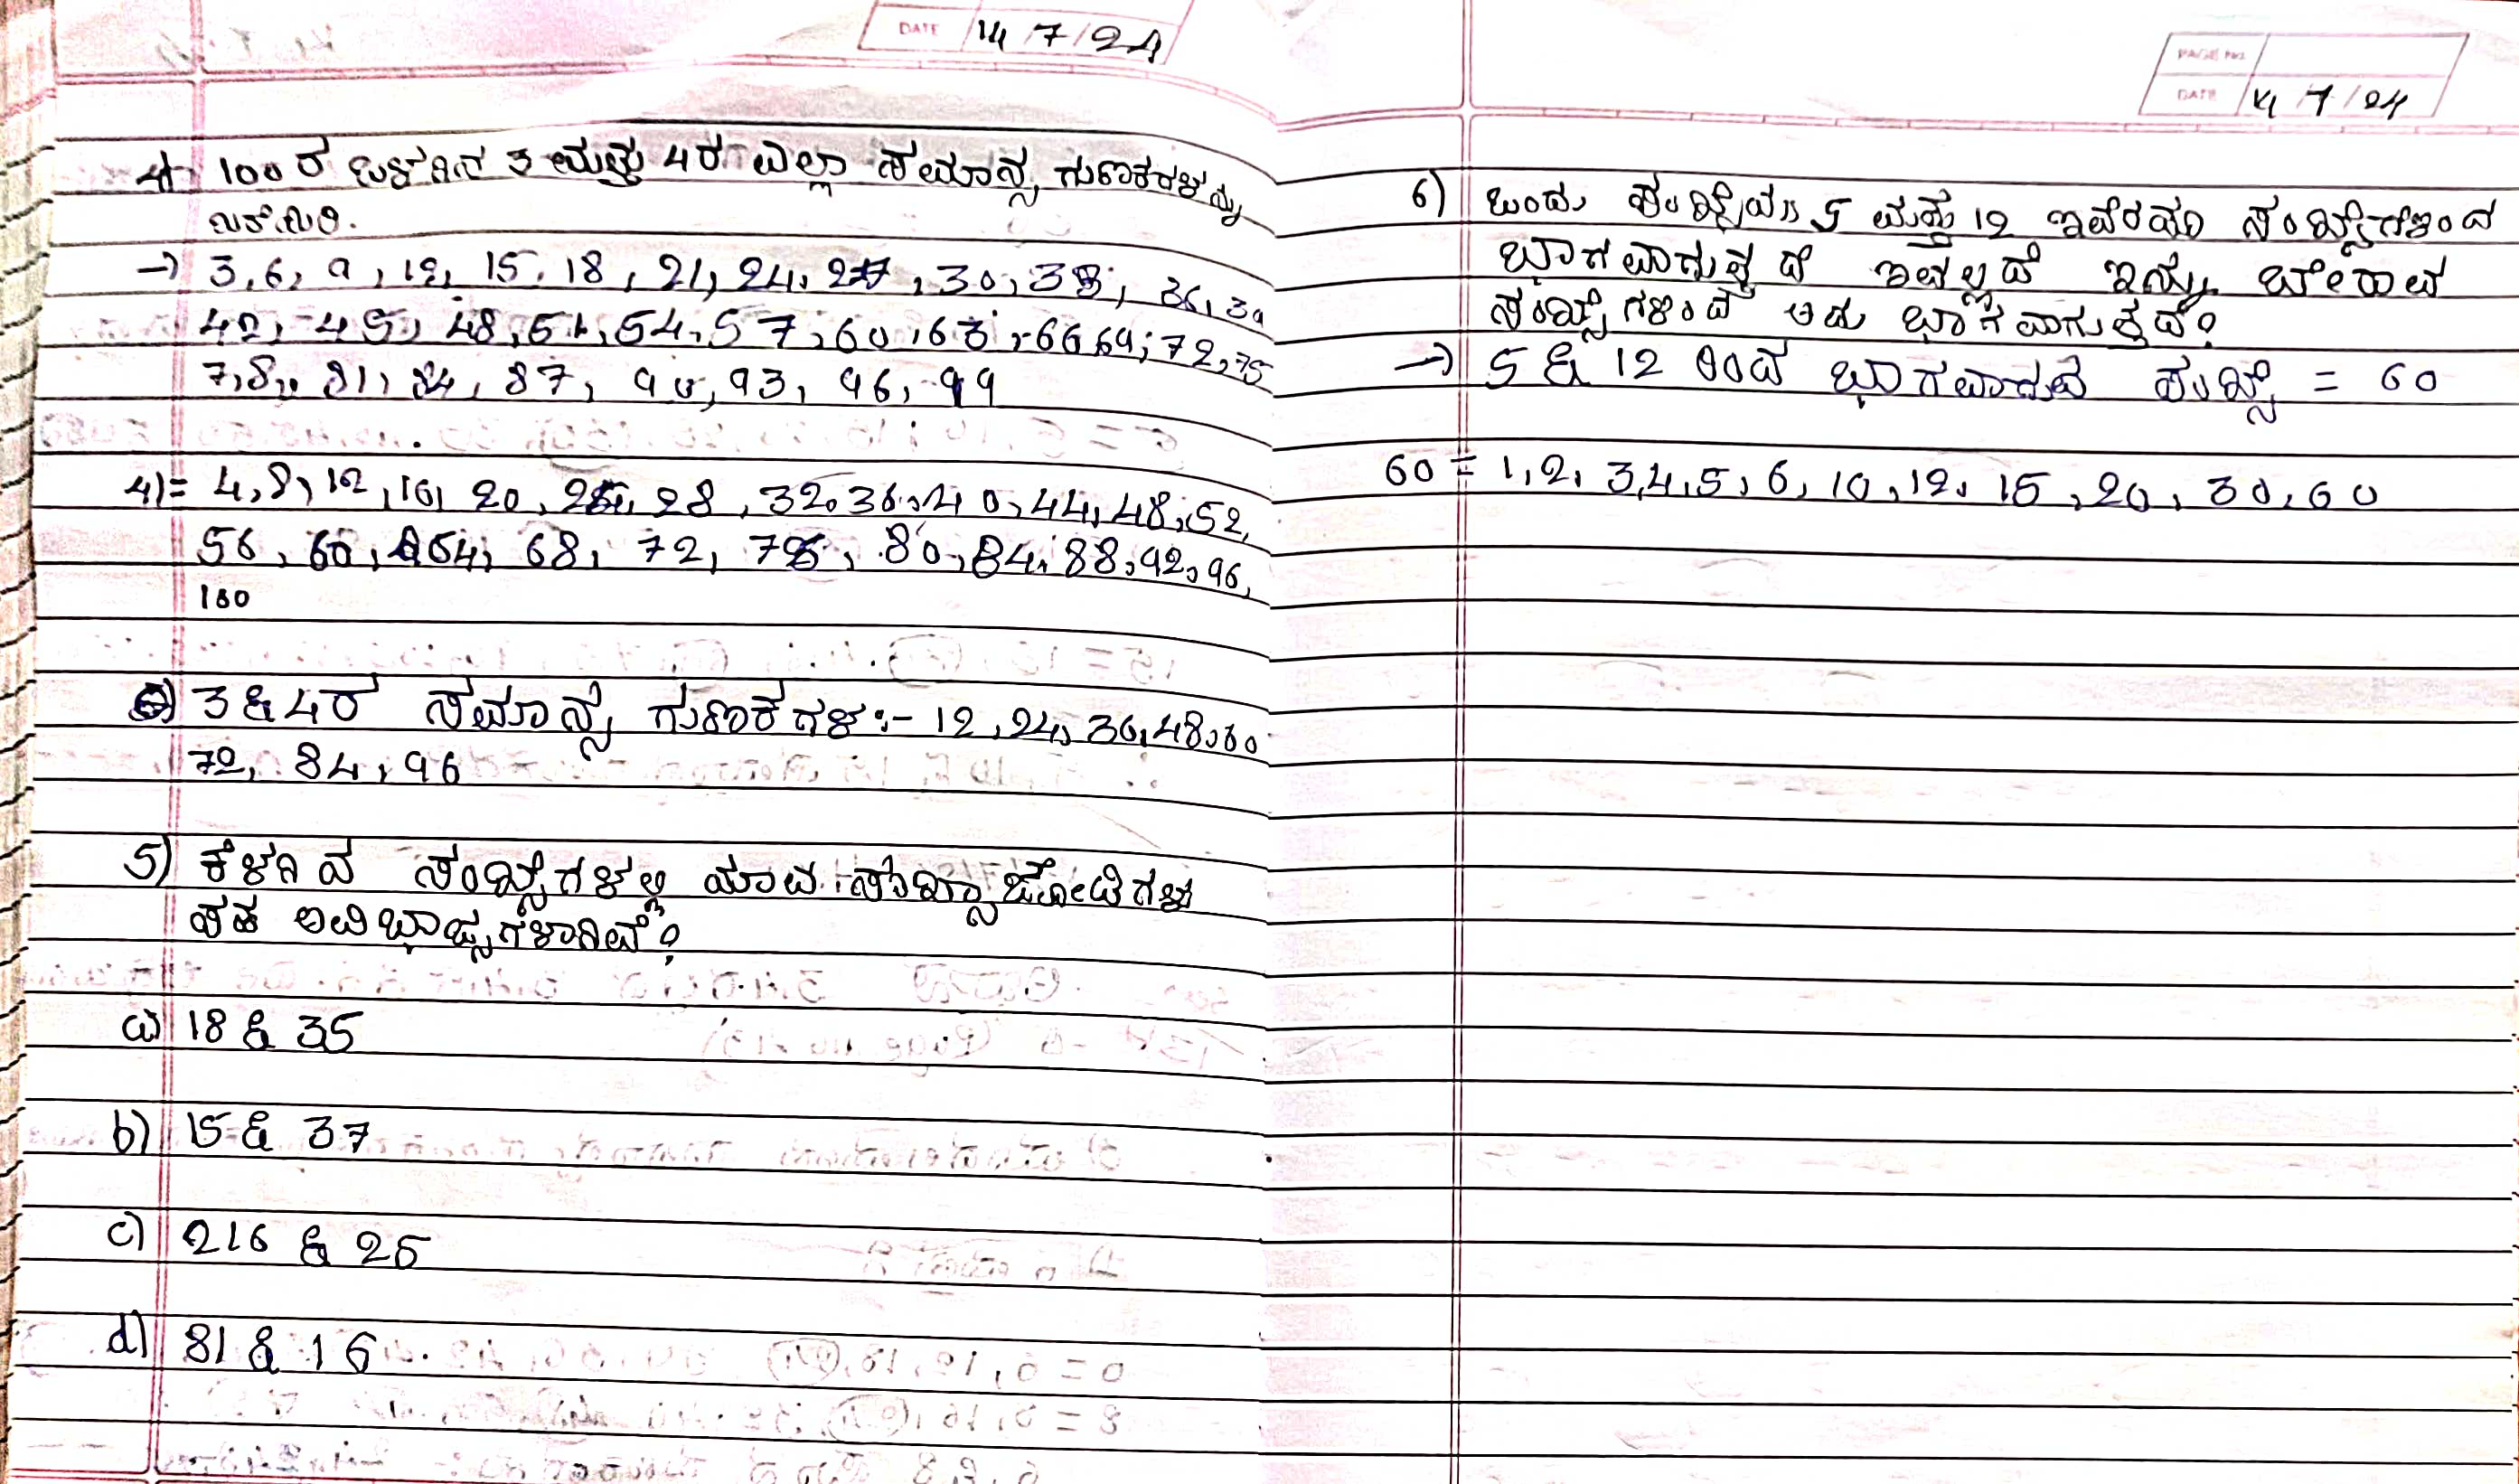 DATE 14/7/24
4) 100 ರ ಒಳಗಿನ 3 ಮತ್ತು 4ರ ಎಲ್ಲಾ ಸಮಾನ್ಯ ಗುಣಕಗಳನ್ನು
ಬರೆಯಿರಿ.
→ 3, 6, 9, 12, 15, 18, 21, 24, 27, 30, 33, 36, 39
42, 45, 48, 51, 54, 57, 60, 63, 66 69, 72, 75
7,8, 81, 84, 87, 90, 93, 96, 99
4)= 4, 8, 12, 16, 20, 24, 28, 32, 36, 40, 44, 48, 52,
56, 60, 64, 68, 72, 76, 80, 84, 88, 92, 96,
100
3 & 4ರ ಸಮಾನ್ಯ ಗುಣಕಗಳ :- 12, 24, 36, 48, 60
72, 84, 96
5) ಕೆಳಗಿನ ಸಂಖ್ಯೆಗಳಲ್ಲಿ ಯಾವ ಸಂಖ್ಯಾ ಜೋಡಿಗಳು
ಸಹ ಅವಿಭಾಜ್ಯಗಳಾಗಿವೆ?
a) 18 & 35
b) 15 & 37
c) 216 & 25
d) 81 & 16
PAGE No.
DATE 14/7/24
6) ಒಂದು ಸಂಖ್ಯೆಯು 5 ಮತ್ತು 12 ಇವೆರಡೂ ಸಂಖ್ಯೆಗಳಿಂದ
ಭಾಗವಾಗುತ್ತದೆ ಇವಲ್ಲದೆ ಇನ್ನು ಬೇರಾವ
ಸಂಖ್ಯೆಗಳಿಂದ ಅದು ಭಾಗವಾಗುತ್ತದೆ?
→ 5 & 12 ರಿಂದ ಭಾಗವಾಗುವ ಸಂಖ್ಯೆ = 60
60 = 1, 2, 3, 4, 5, 6, 10, 12, 15, 20, 30, 60